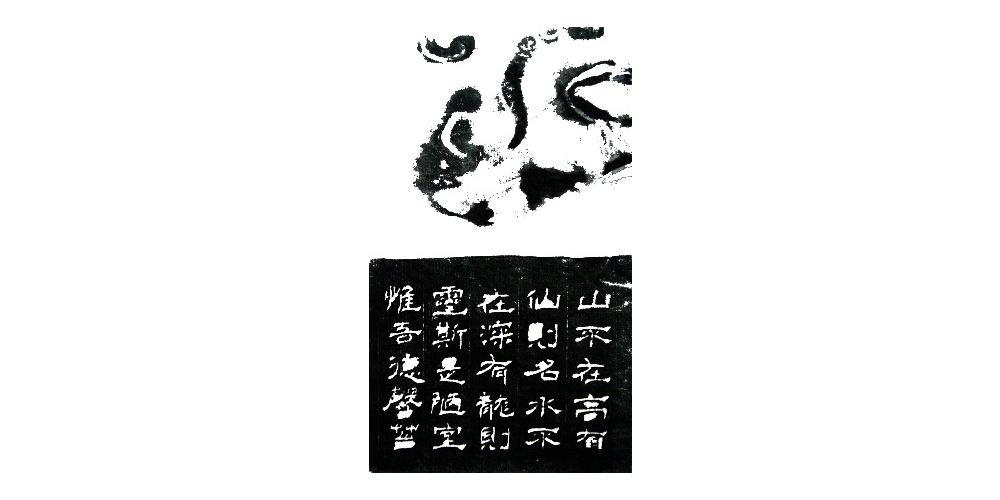 山不在高有
仙則名水不
在深有龍則
靈斯是陋室
惟吾德馨苔